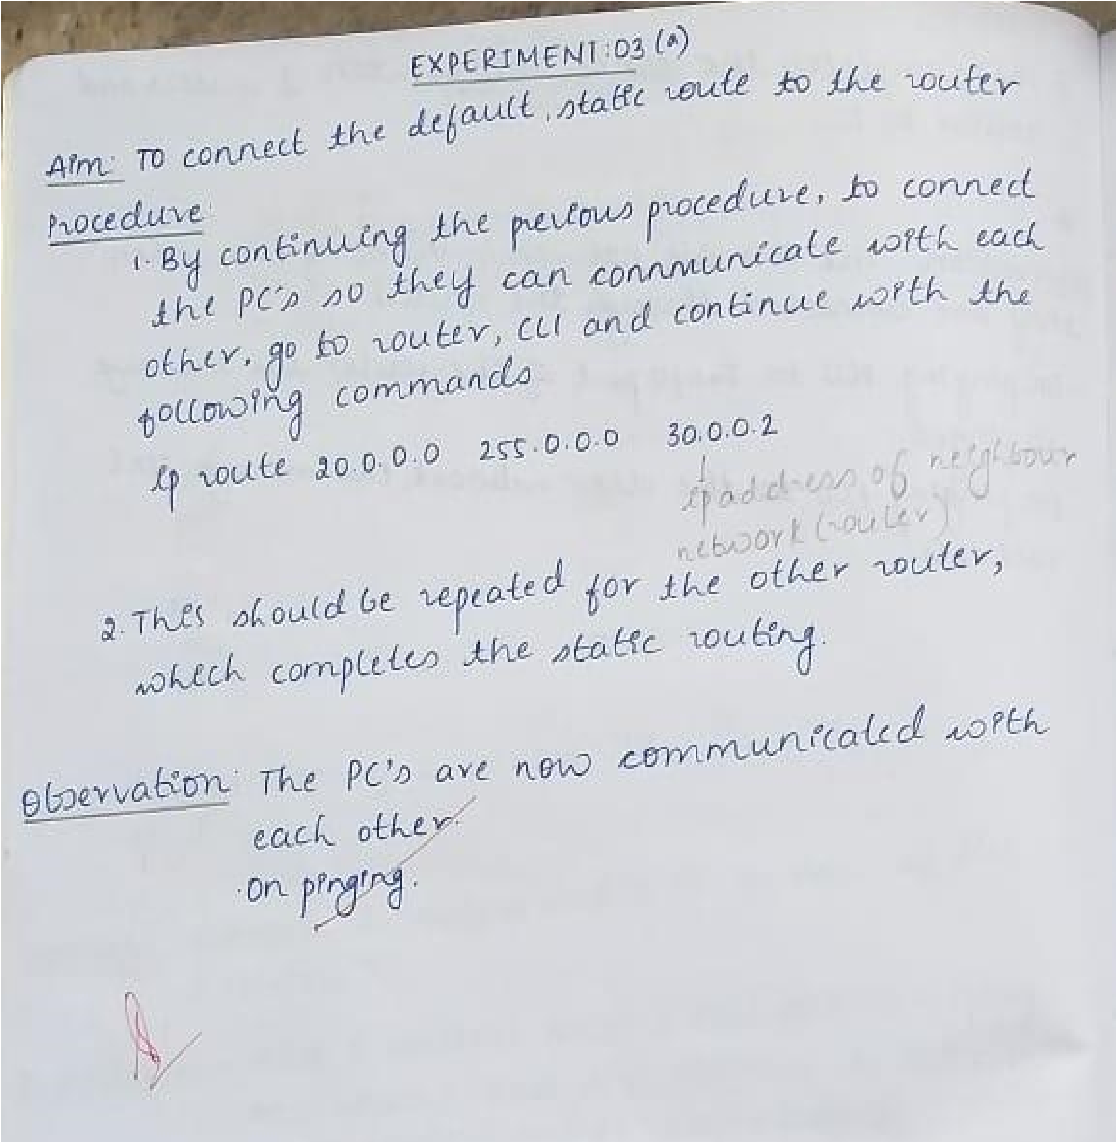 EXPERIMENT:03 (a)
Aim: To connect the default, static route to the router
Procedure:
1. By continuing the previous procedure, to connect
the PC's so they can connmunicate with each
other, go to router, CLI and continue with the
following commands
ip route 20.0.0.0 255.0.0.0 30.0.0.2
ip address of neighbour
network (router)
2. This should be repeated for the other router,
which completes the static routing.
Observation: The PC's are now communicated with
each other.
·On pinging.